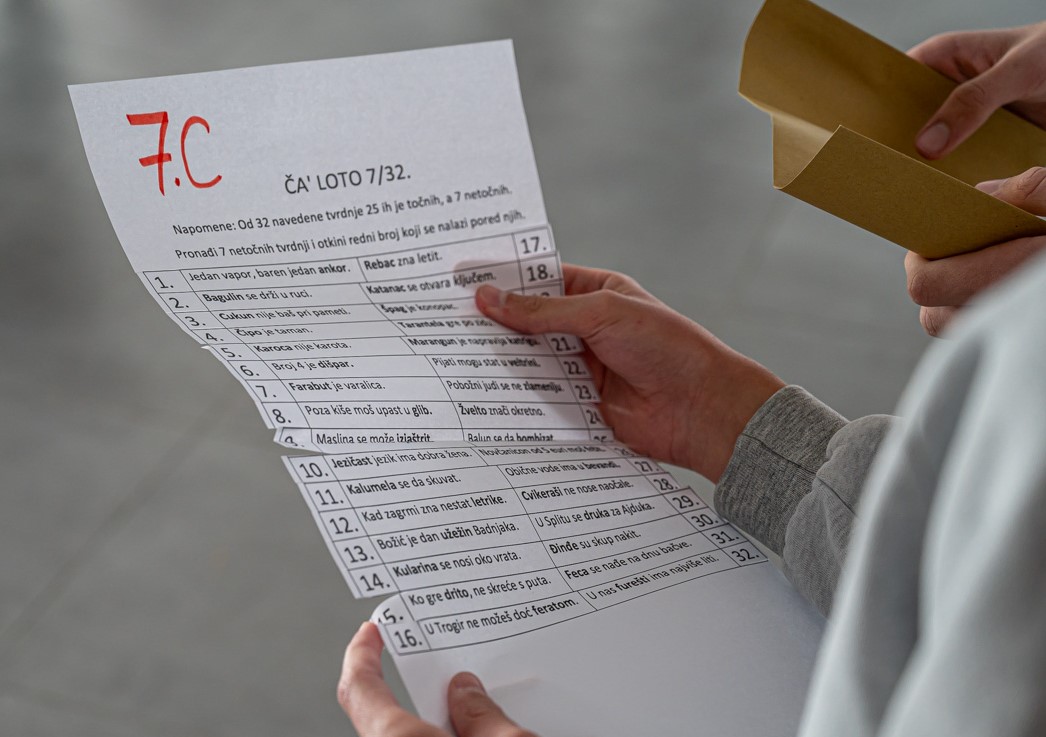 7.C
ČA' LOTO 7/32.
Napomene: Od 32 navedene tvrdnje 25 ih je točnih, a 7 netočnih.
Pronađi 7 netočnih tvrdnji i otkini redni broj koji se nalazi pored njih.
1. Jedan vapor, baren jedan ankor. Rebac zna letit. 17.
2. Bagulin se drži u ruci. Katanac se otvara ključem. 18.
3. Cukun nije baš pri pameti. Špag je konopac.
4. Čipo je taman. Tarantela gre po zidu.
5. Karoca nije karota. Marangun je napravija katrigu. 21.
6. Broj 4 je dišpar. Pijati mogu stat u veltrini. 22.
7. Farabut je varalica. Pobožni judi se ne zlameniju. 23.
8. Poza kiše moš upast u glib. Žvelto znači okretno. 24
9. Maslina se može izjaštrit. Balun se da bombizat.
10. Jezičast jezik ima dobra žena. Novčanicon od 5 euri moš
11. Kalumela se da skuvat. Obične vode ima u bevandi. 27.
12. Kad zagrmi zna nestat letrike. Cvikeraši ne nose naočale. 28.
13. Božić je dan užežin Badnjaka. U Splitu se druka za Ajduka. 29.
14. Kularina se nosi oko vrata. Đinđe su skup nakit. 30.
5. Ko gre drito, ne skreće s puta. Feca se nađe na dnu bačve. 31.
16. U Trogir ne možeš doć feratom. U nas furešti ima najviše liti. 32.